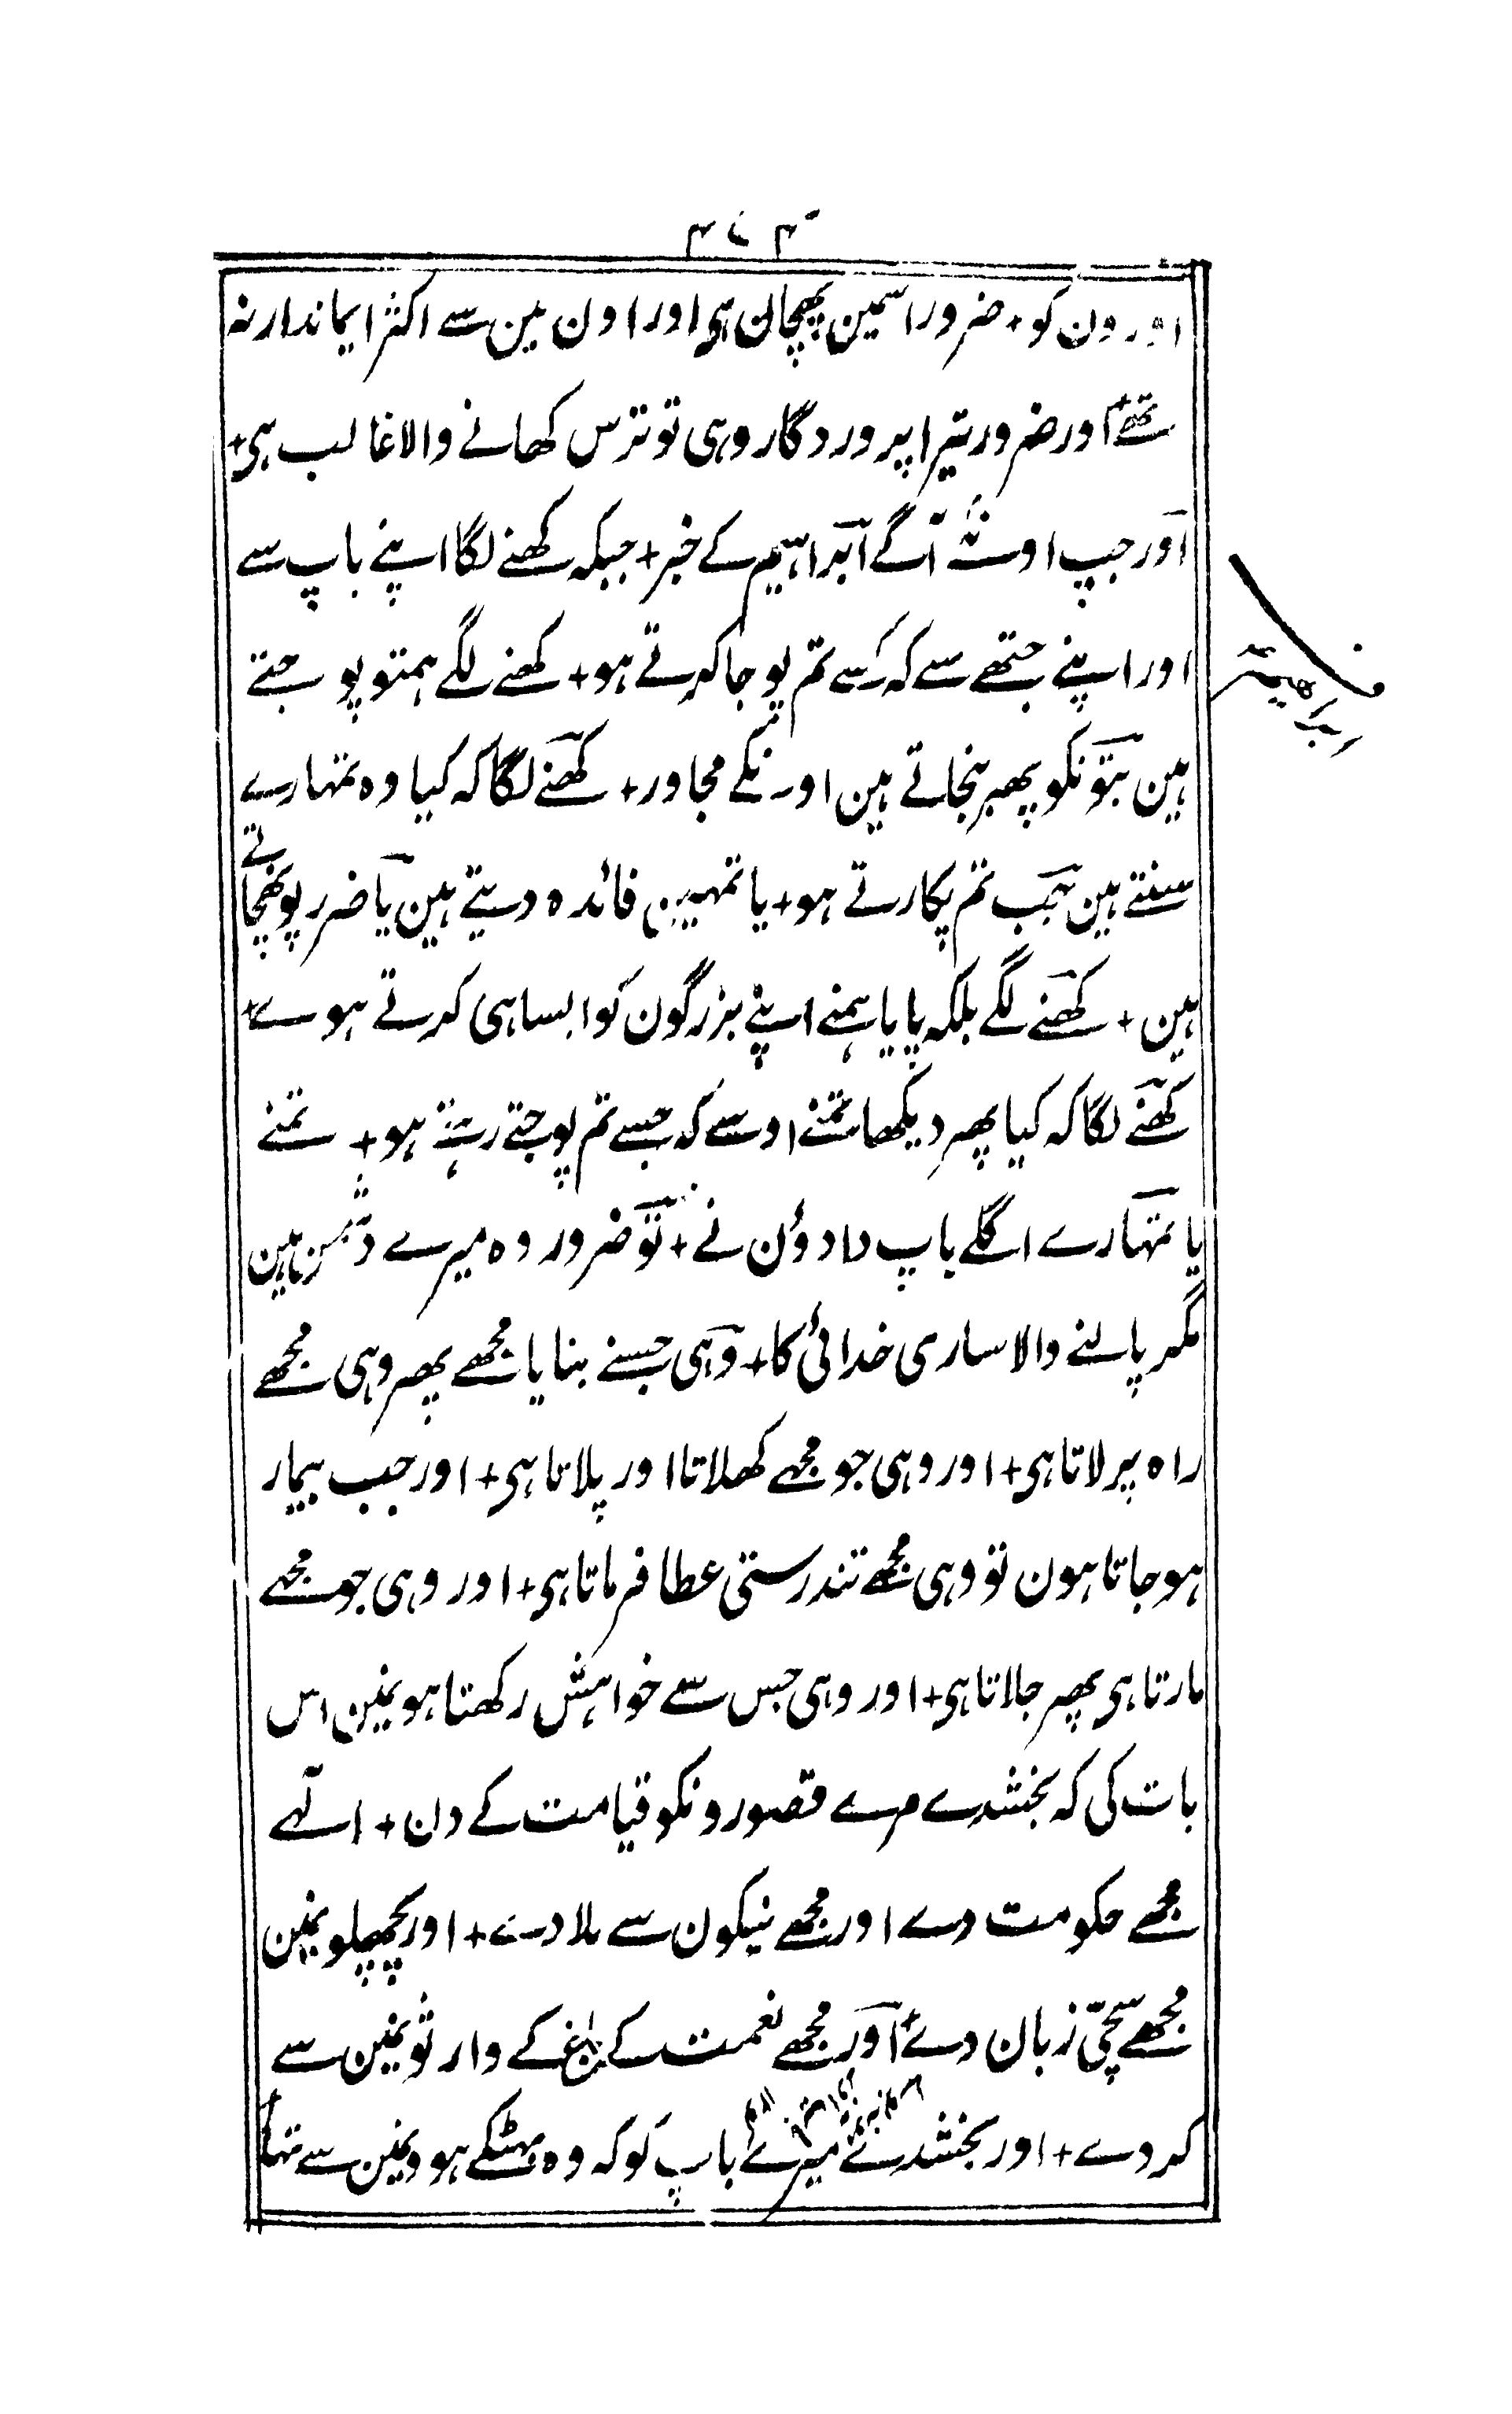 اورون کو + ضرور اسمین پہچان ہی اور اون مین سے اکثر ایماندار نہ
تھے + اور ضرور تیرا پروردگار وہی تو ترس کھانے والا غالب ہی +
اور جپ اونکے آگے ابراہیم کے خبر + جبکہ کھنے لگا اپنے باپ سے
اور اپنے جتھے سے کہ کسے تم پوجا کرتے ہو + کھنے لگے ہمتو پوجتے
ہین بتونکو پھر بنجاتے ہین اونکے مجاور + کھنے لگا کہ کیا وہ تمہارے
سنتے ہین جب تم پکارتے ہو + یا تمہین فائدہ دیتے ہین یا ضرر پونہچاتے
ہین + کھنے لگے بلکہ پایا ہمنے اپنے بزرگون کو ایسا ہی کرتے ہوے +
کھنے لگا کہ کیا پھر دیکھا تمنے اوسے کہ جسے تم پوجتے رہتے ہو + تمنے
یا تمہارے اگلے باپ دادوُن نے + تو ضرور وہ میرے دشمن ہین
مگر پالنے والا ساری خدائی کا + وہی جسنے بنایا مجھے پھر وہی مجھے
راہ پر لاتا ہی + اور وہی جو مجھے کھلاتا اور پلاتا ہی + اور جب بیمار
ہو جاتا ہون تو وہی مجھے تندرستی عطا فرماتا ہی + اور وہی جو مجھے
مارتا ہی پھر جلاتا ہی + اور وہی جس سے خواہش رکھتا ہون مین اس
بات کی کہ بخشدے مرے قصورونکو قیامت کے دن + الٰہے
مجھے حکومت دے اور مجھے نیکون سے ملا دے + اور پچھلو نمین
مجھے سچّی زبان دے + اور مجھے نعمت کے باغ کے وارثونمین سے
کر دے + اور بخشدے میرے باپ کو کہ وہ بہٹکے ہوونمین سے تہا +
ابراهیم